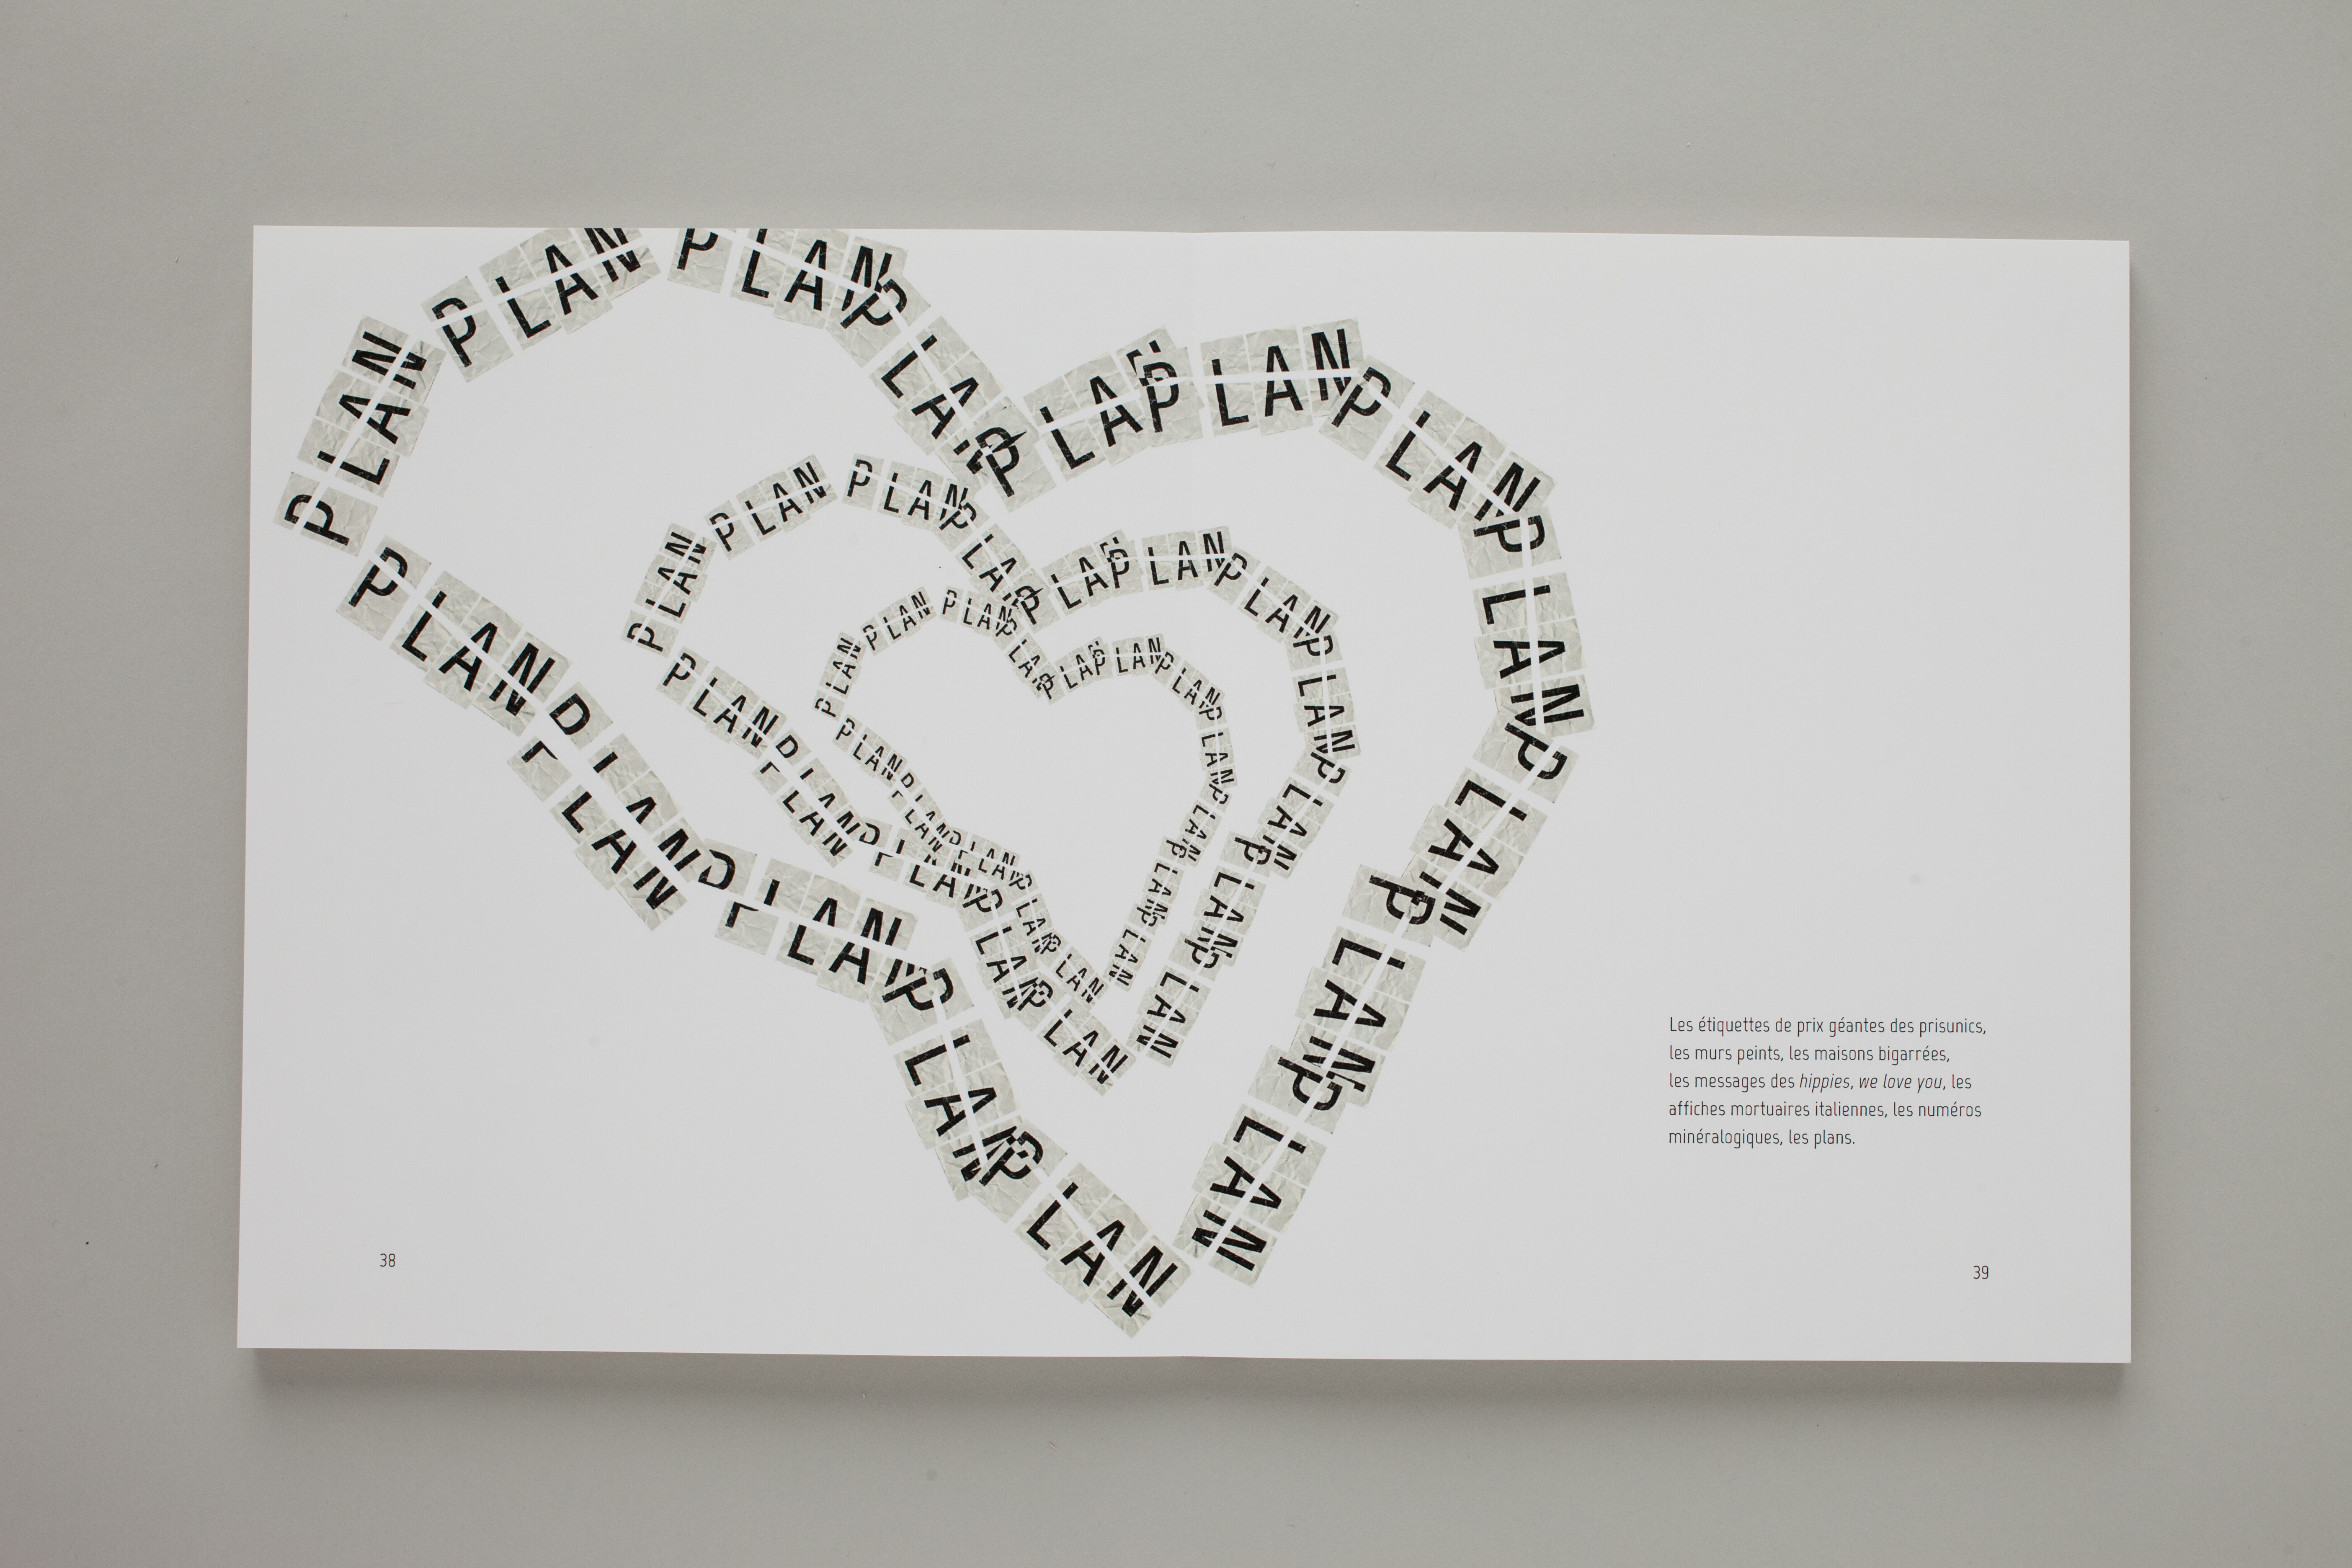 PLAN
PLAN
PLAN
PLA
PLA
PLAN
PLAN
PLAN
PLAN
PLAN
PLAN
PLAN
PLAN
PLAN
PLAN
PLAN
PLAN
PLAN
PLAN
PLA
PLA
PLAN
PLAN
PLAN
PLAN
PLAN
PLAN
PLAN
PLAN
PLAN
PLAN
PLAN
PLAN
PLAN
PLAN
PLA
PLA
PLAN
PLAN
PLAN
PLAN
PLAN
PLAN
PLAN
PLAN
PLAN
PLAN
PLAN
Les étiquettes de prix géantes des prisunics,
les murs peints, les maisons bigarrées,
les messages des hippies, we love you, les
affiches mortuaires italiennes, les numéros
minéralogiques, les plans.
38
39